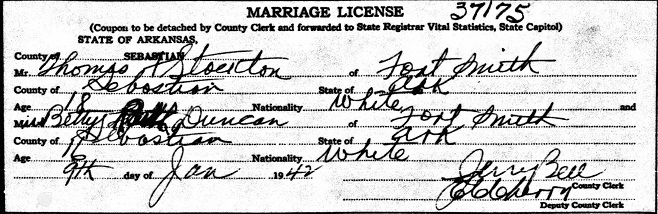 MARRIAGE LICENSE 37175
(Coupon to be detached by County Clerk and forwarded to State Registrar Vital Statistics, State Capitol)
STATE OF ARKANSAS,
County of SEBASTIAN
Mr. Thomas Stockton of Fort Smith
County of Sebastian State of Ark
Age 18 Nationality White and
Betty Duncan of Fort Smith
County of Sebastian State of Ark
Age Nationality White
9th day of Jan 1942 Jerry Bell County Clerk
Deputy County Clerk